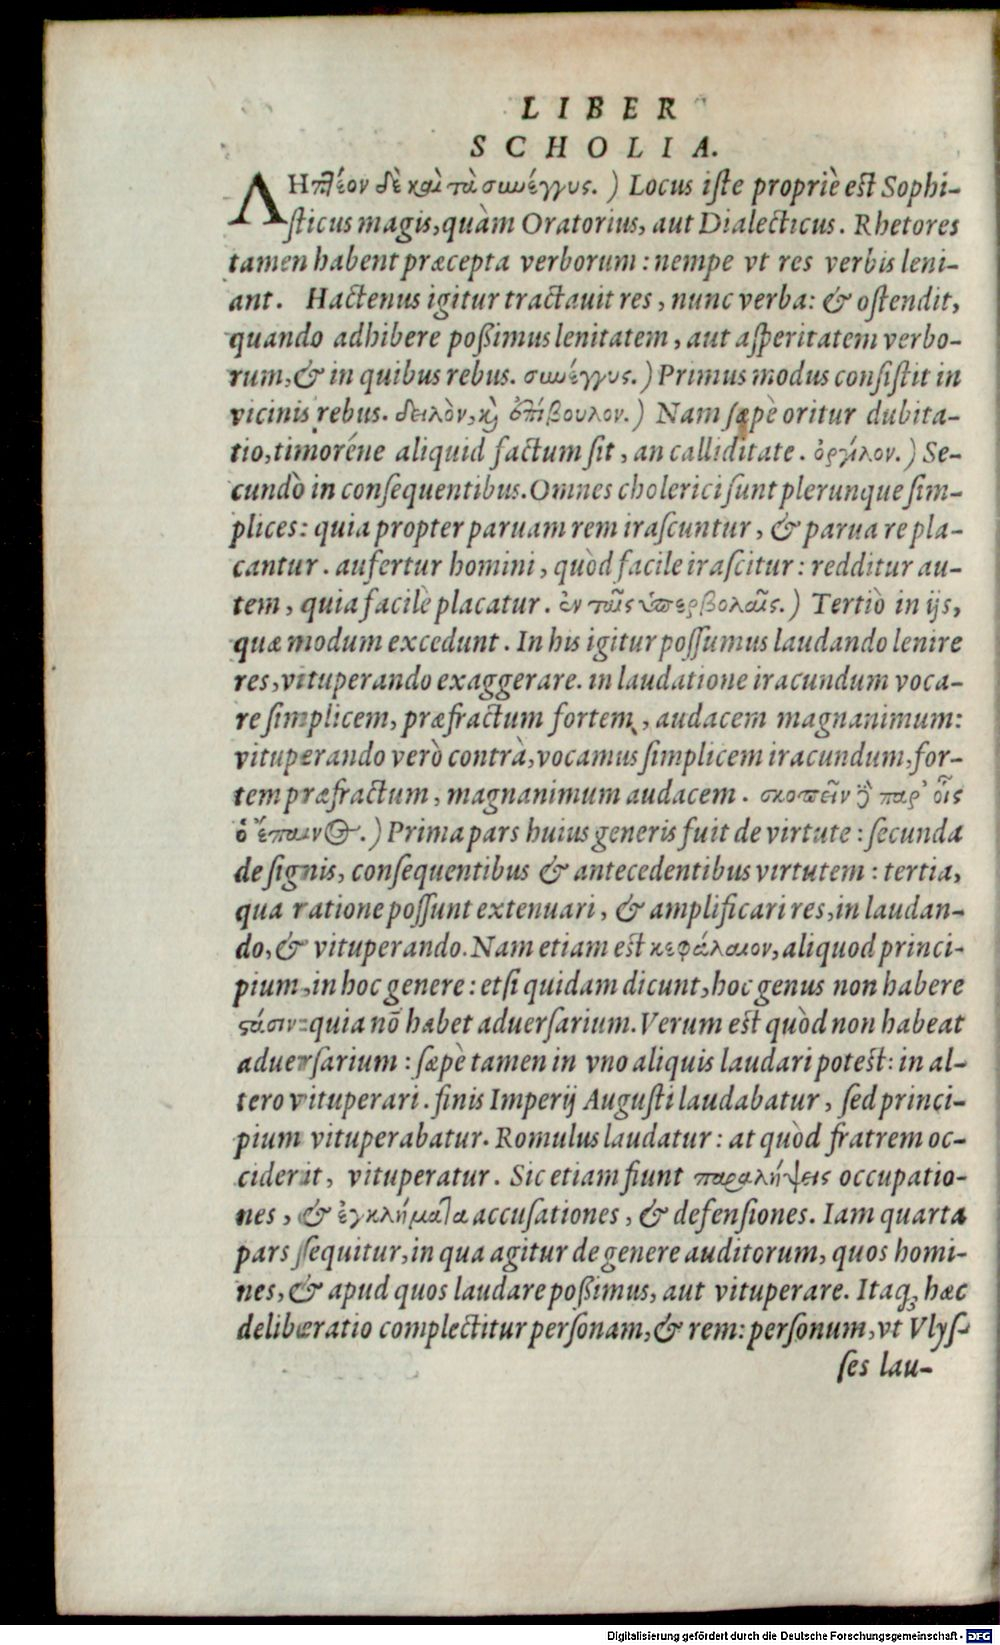 LIBER
SCHOLIA.
ΛΗπτέον δὲ καὶ τὰ σωέγγυς. ) Locus iste propriè est Sophi-
sticus magis, quàm Oratorius, aut Dialecticus. Rhetores
tamen habent præcepta verborum: nempe vt res verbis leni-
ant. Hactenus igitur tractauit res, nunc verba: & ostendit,
quando adhibere poßimus lenitatem, aut asperitatem verbo-
rum, & in quibus rebus. σωέγγυς. ) Primus modus consistit in
vicinis rebus. δειλὸν, καὶ ἐπίβουλον. ) Nam sæpè oritur dubita-
tio, timoréne aliquid factum sit, an calliditate. ὀργίλον. ) Se-
cundò in consequentibus. Omnes cholerici sunt plerunque sim-
plices: quia propter paruam rem irascuntur, & parua re pla-
cantur. aufertur homini, quòd facile irascitur: redditur au-
tem, quia facilè placatur. ἐν ταῖς ὑπερβολαῖς. ) Tertiò in ijs,
quæ modum excedunt. In his igitur possumus laudando lenire
res, vituperando exaggerare. in laudatione iracundum voca-
re simplicem, præfractum fortem, audacem magnanimum:
vituperando verò contrà, vocamus simplicem iracundum, for-
tem præfractum, magnanimum audacem. σκοπεῖν δὲ παρ' οἷς
ὁ ἔπαινος. ) Prima pars huius generis fuit de virtute: secunda
de signis, consequentibus & antecedentibus virtutem: tertia,
qua ratione possunt extenuari, & amplificari res, in laudan-
do, & vituperando. Nam etiam est κεφάλαιον, aliquod princi-
pium, in hoc genere: etsi quidam dicunt, hoc genus non habere
ςάσιν: quia nō habet aduersarium. Verum est quòd non habeat
aduersarium: sæpè tamen in vno aliquis laudari potest: in al-
tero vituperari. finis Imperij Augusti laudabatur, sed princi-
pium vituperabatur. Romulus laudatur: at quòd fratrem oc-
ciderit, vituperatur. Sic etiam fiunt παραλήψεις occupatio-
nes, & ἐγκλήματα accusationes, & defensiones. Iam quarta
pars sequitur, in qua agitur de genere auditorum, quos homi-
nes, & apud quos laudare poßimus, aut vituperare. Itaq; hæc
deliberatio complectitur personam, & rem: personum, vt Vlys-
ses lau-
Digitalisierung gefördert durch die Deutsche Forschungsgemeinschaft - DFG